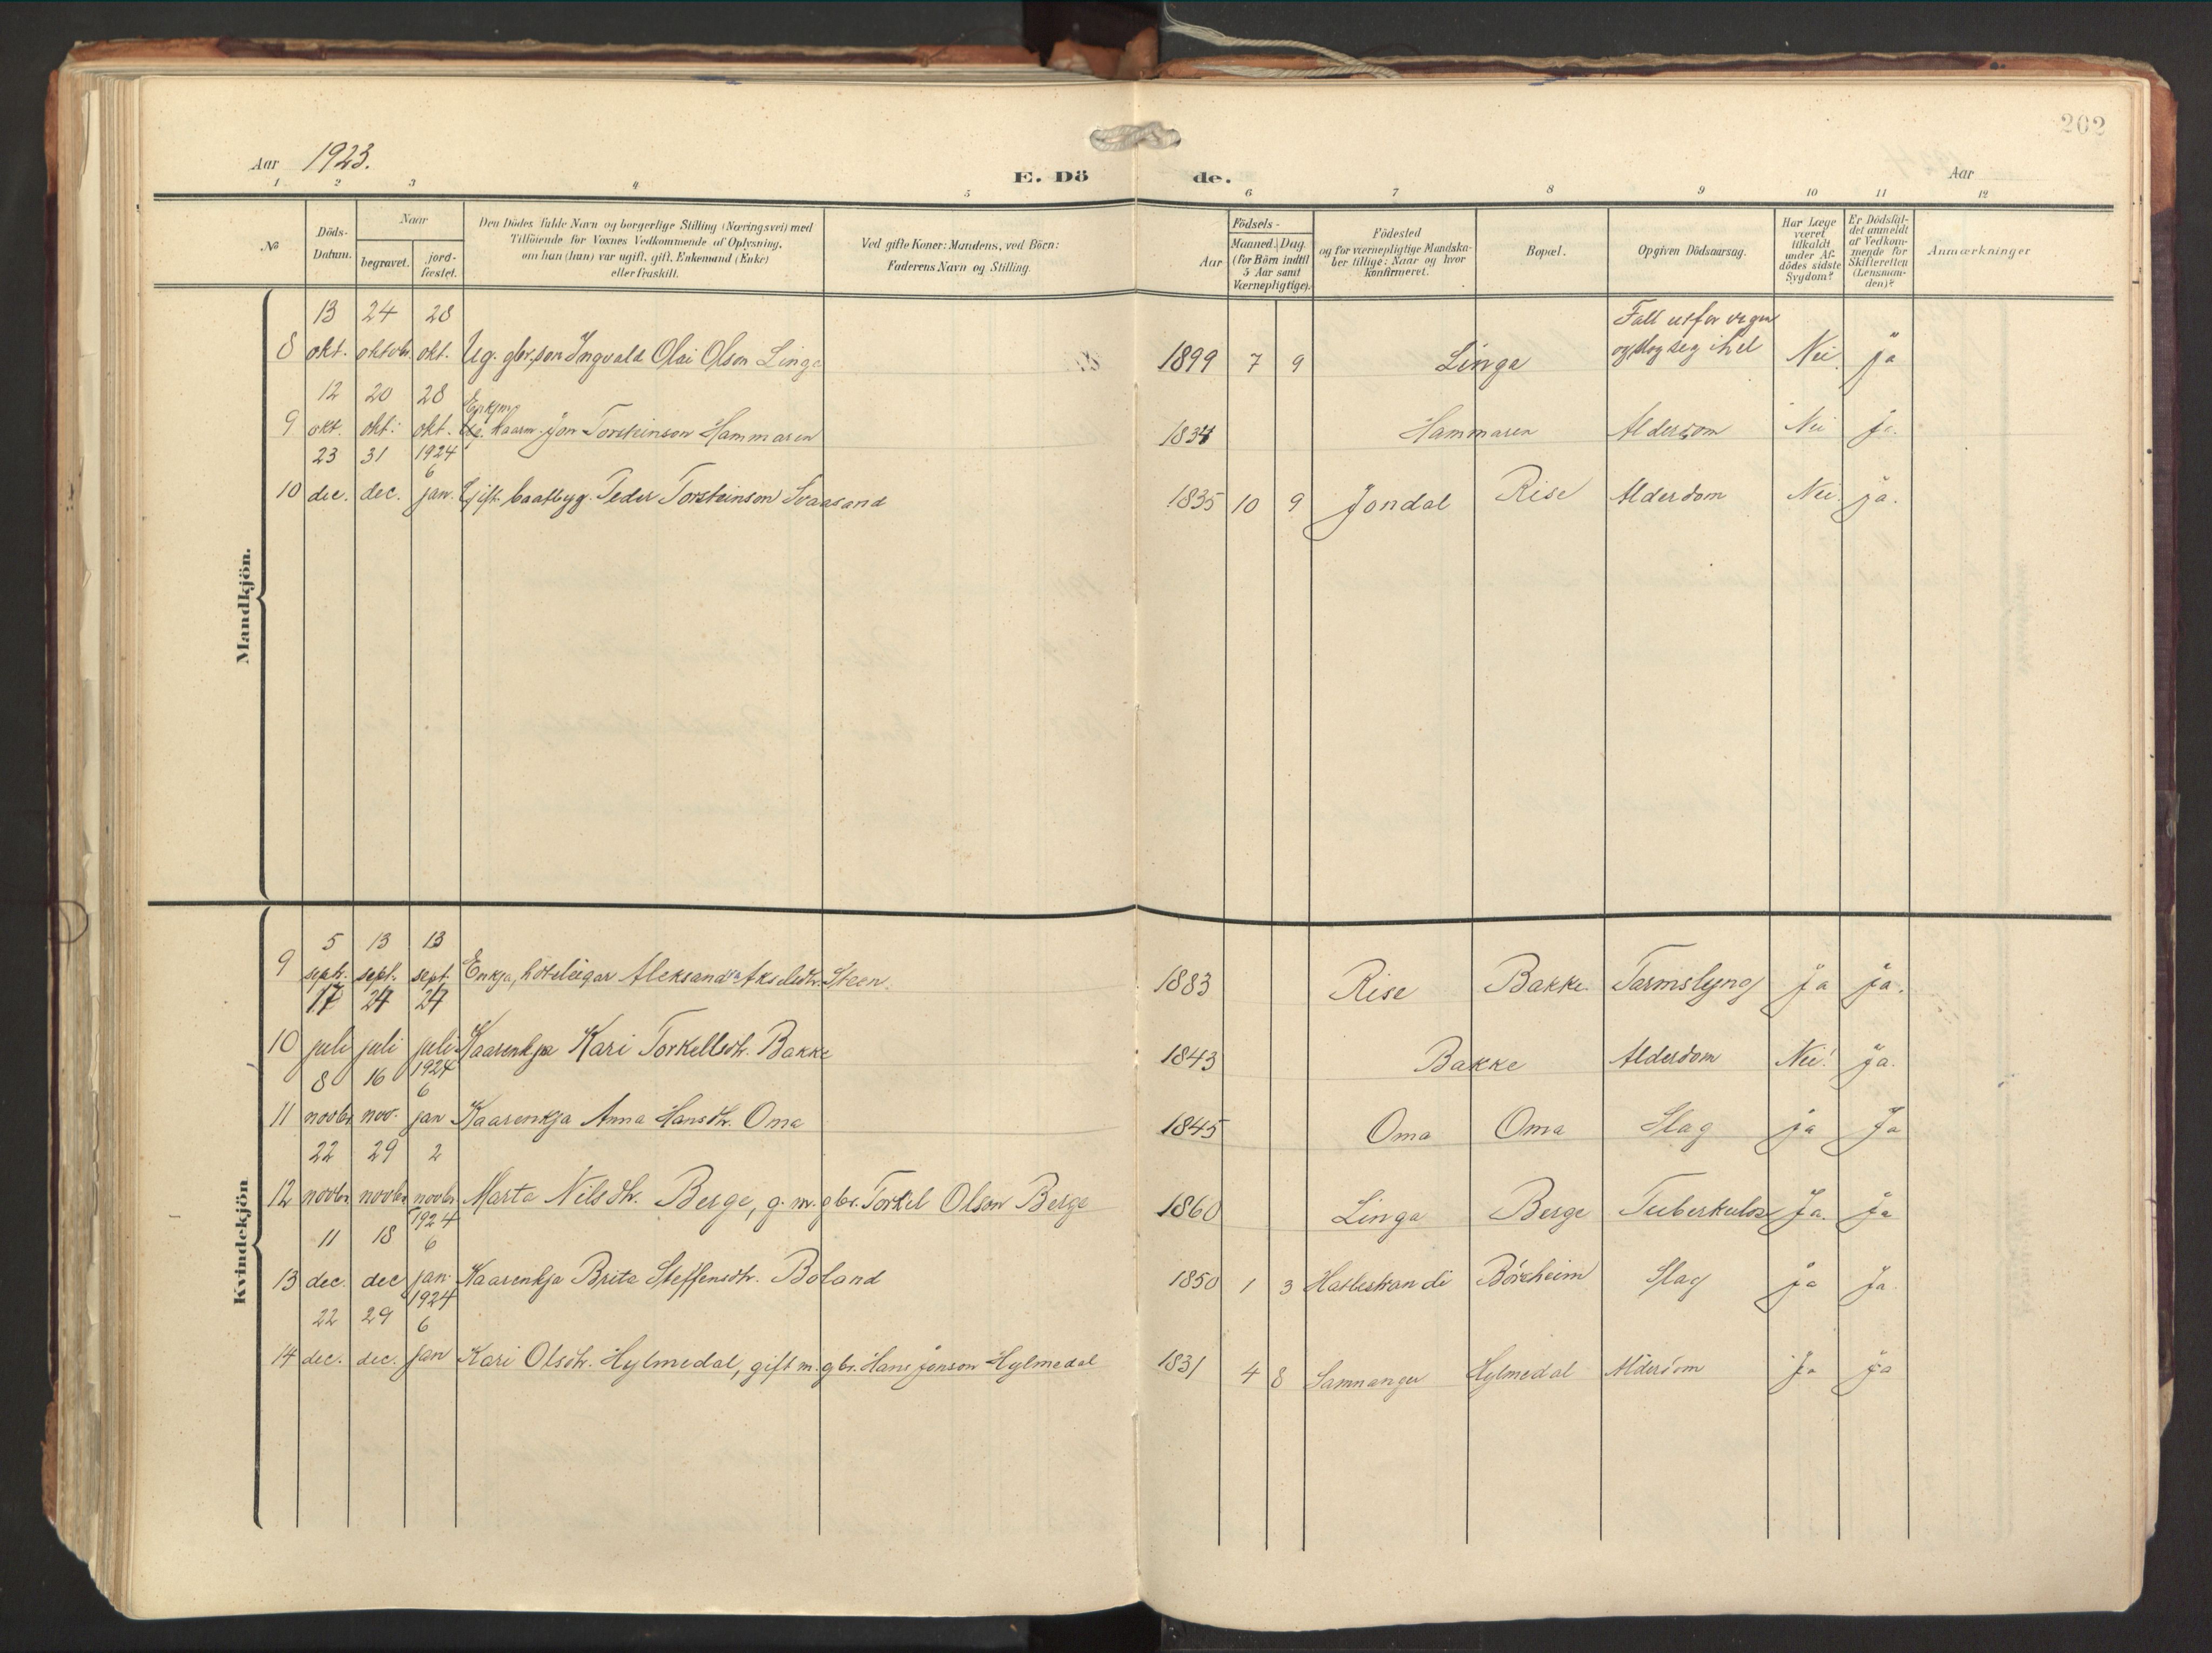 202
Aar 1923.
E. Dö de.
Aar
1 2 3 4 5 6 7 8 9 10 11 12
No
Döds-
Datum.
Naar
begravet.
jord-
fæstet.
Den Dödes fulde Navn og borgerlige Stilling (Næringsvei) med
Tilföiende for Voxnes Vedkommende af Oplysning,
om han (hun) var ugift, gift, Enkemand (Enke)
eller fraskilt.
Ved gifte Koner: Mandens, ved Börn:
Faderens Navn og Stilling.
Födsels-
Aar
Maaned. Dag.
(for Börn indtil
5 Aar samt
Værnepligtige).
Födested
og for værnepligtige Mandska-
ber tillige: Naar og hvor
konfirmeret.
Bopæl.
Opgiven Dödsaarsag.
Har Læge
været
tilkaldt
under Af-
dödes sidste
Sygdom?
Er Dödsfal-
det anmeldt
af Vedkom-
mende for
Skifteretten
(Lensman-
den)?
Anmærkninger
Mandkjön.
13 24 28 Fall utfor vegen
8 okt. oktobr. okt. Ug. gbr.son Ingvald Olai Olson Linga 1899 7 9 Linga og slog seg ihel Nei. ja
12 20 28 Enkjem.
9 okt. okt. okt. kaarm. Jon Torsteinson Hammaren 1834 Hammaren Alderdom Nei ja.
23 31 1924
6
10 dec. dec. jan. Gift. baatbyg. Peder Torsteinson Svaasand 1835 10 9 Jondal Rise Alderdom Nei. ja.
Kvindekjön
5 13 13
9 septr. sept. sept. Enkja, hoteleigar Aleksandra Akseldtr. Steen. 1883 Rise Bakke. Tarmslyng ja ja.
17 24 24
10 juli juli juli Kaarenkja Kari Torkellsdtr. Bakke 1843 Bakke Alderdom Nei! ja.
8 16 1924
6
11 novbr nov. jan Kaarenkja Anna Hansdtr. Oma 1845 Oma Oma Slag ja Ja
22 29 2
12 novbr novbr novbr. Marta Nilsdtr. Berge, g. m. gbr. Torkel Olson Berge 1860 Linga Berge Tuberkulos Ja. ja
11 18 1924
6
13 dec. dec jan. Kaarenkja Brita Steffensdtr. Boland 1850 1 3 Hatlestrandi Börsheim Slag ja Ja.
22 29 1924
6
14 dec. dec. jan Kari Olsdtr. Hylmedal, gift m. gbr. Hans Jonson Hylmedal 1831 4 8 Samnanger Hylmedal Alderdom Ja ja